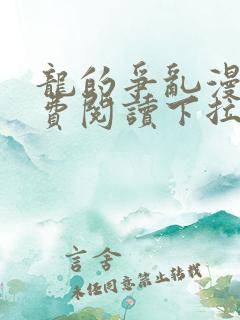 龍的爭亂漫
費閱讀下拉
言舍
未经同意禁止转载